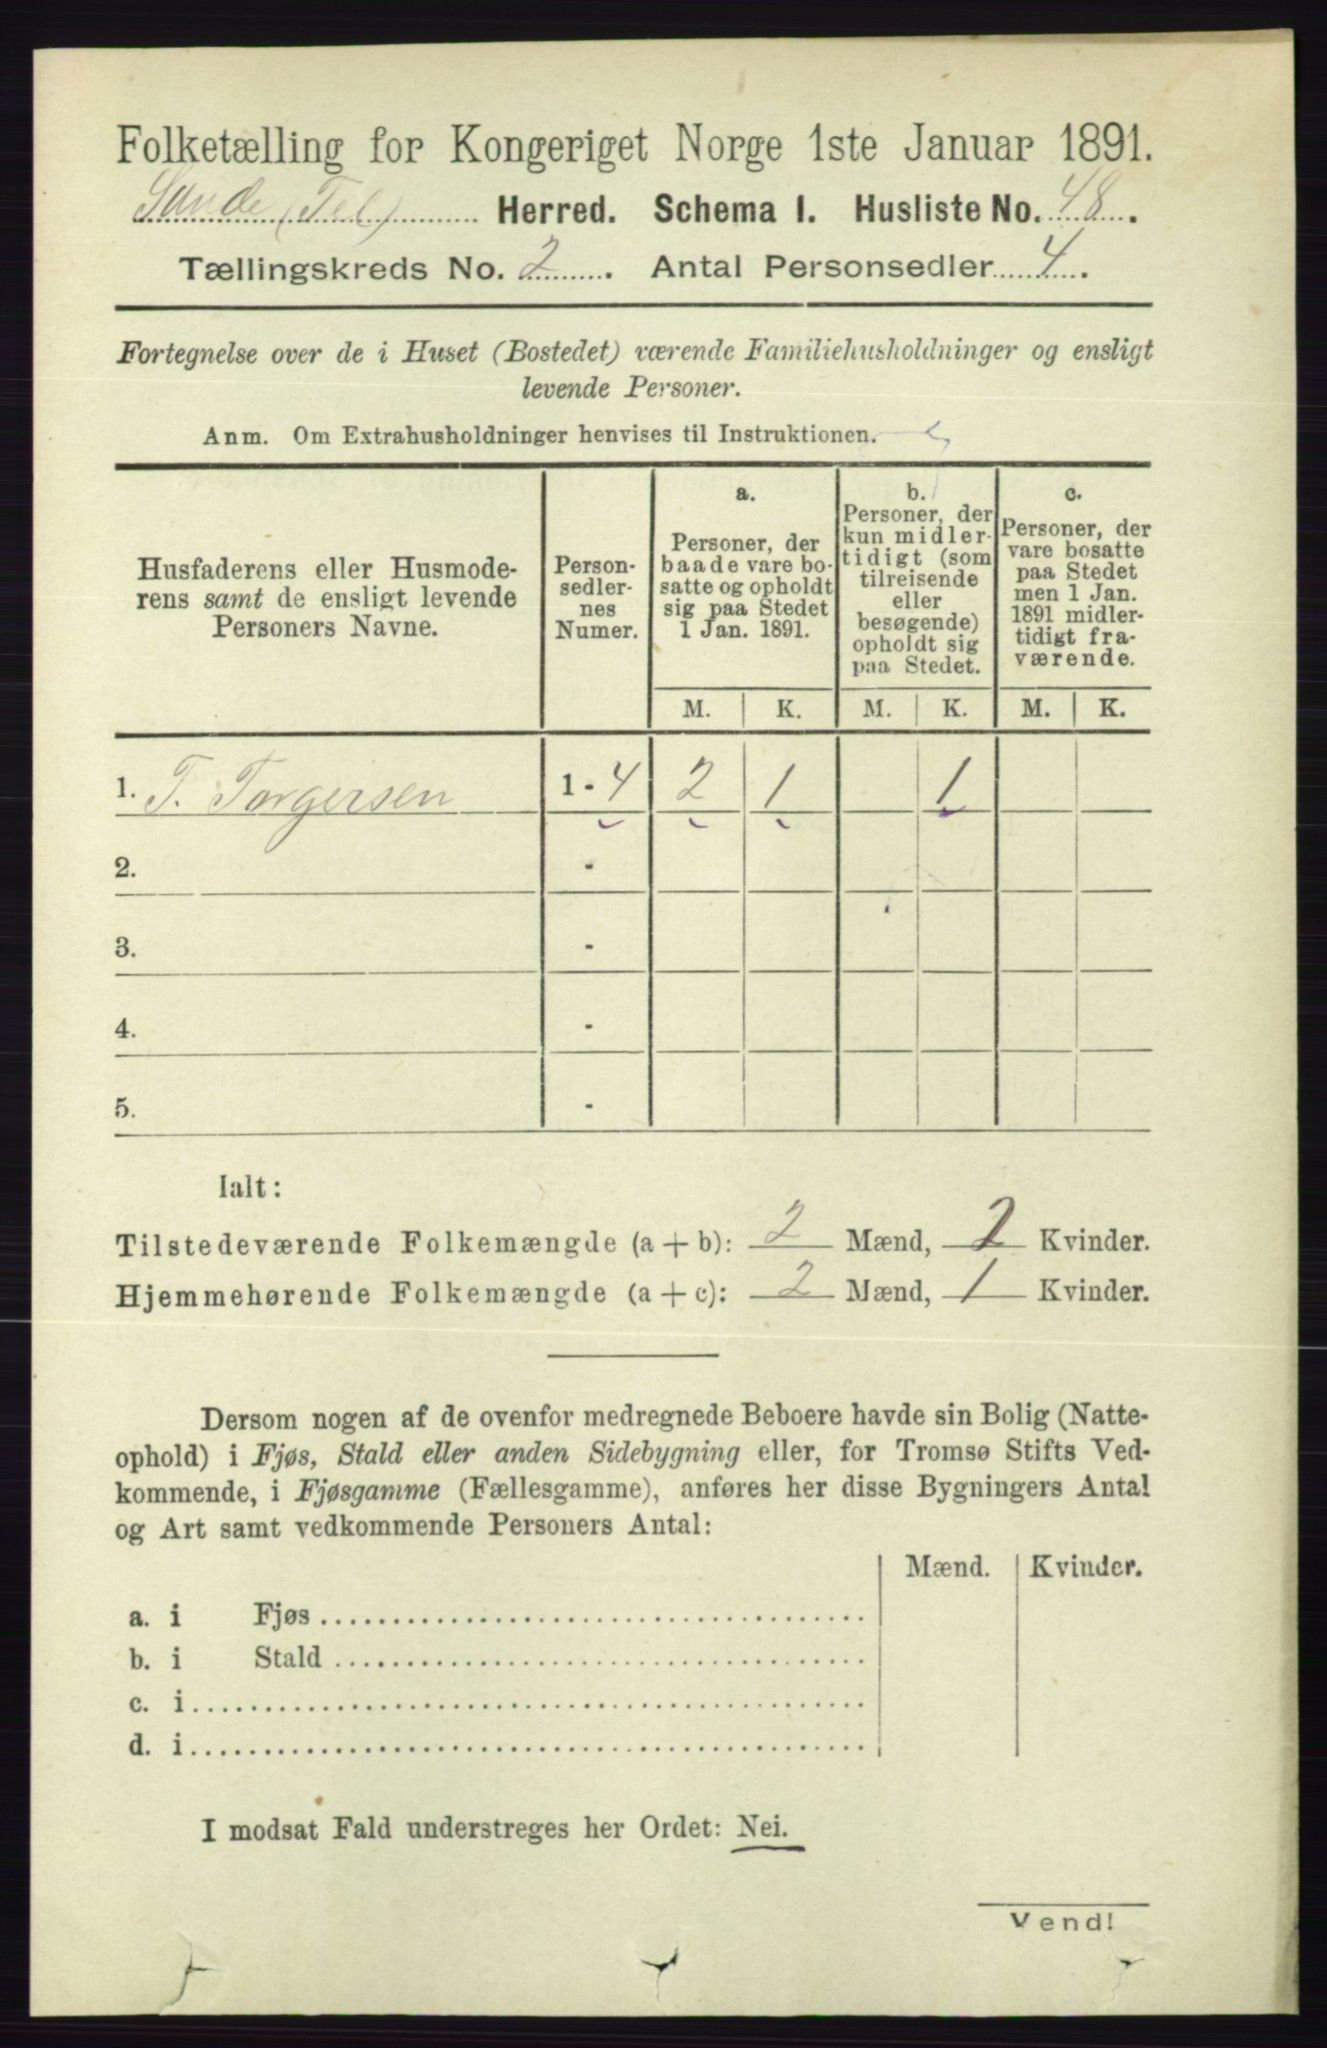 Folketælling for Kongeriget Norge 1ste Januar 1891.
Sande (Tel) Herred. Schema I. Husliste No. 48.
Tællingskreds No. 2. Antal Personsedler 4.
Fortegnelse over de i Huset (Bostedet) værende Familiehusholdninger og ensligt
levende Personer.
Anm. Om Extrahusholdninger henvises til Instruktionen.
Husfaderens eller Husmode-
rens samt de ensligt levende
Personers Navne.
Person-
sedler-
nes
Numer.
a.
Personer, der
baade vare bo-
satte og opholdt
sig paa Stedet
1 Jan. 1891.
b.
Personer, der
kun midler-
tidigt (som
tilreisende
eller
besøgende)
opholdt sig
paa Stedet.
c.
Personer, der
vare bosatte
paa Stedet
men 1 Jan.
1891 midler-
tidigt fra-
værende.
M. K. M. K. M. K.
1. T. Torgersen 1 - 4 2 1 1
2. -
3. -
4. -
5. -
Ialt:
Tilstedeværende Folkemængde (a + b): 2 Mænd, 2 Kvinder.
Hjemmehørende Folkemængde (a + c): 2 Mænd, 1 Kvinder.
Dersom nogen af de ovenfor medregnede Beboere havde sin Bolig (Natte-
ophold) i Fjøs, Stald eller anden Sidebygning eller, for Tromsø Stifts Ved-
kommende, i Fjøsgamme (Fællesgamme), anføres her disse Bygningers Antal
og Art samt vedkommende Personers Antal:
Mænd. Kvinder.
a. i Fjøs
b. i Stald
c. i
d. i
I modsat Fald understreges her Ordet: Nei.
Vend!